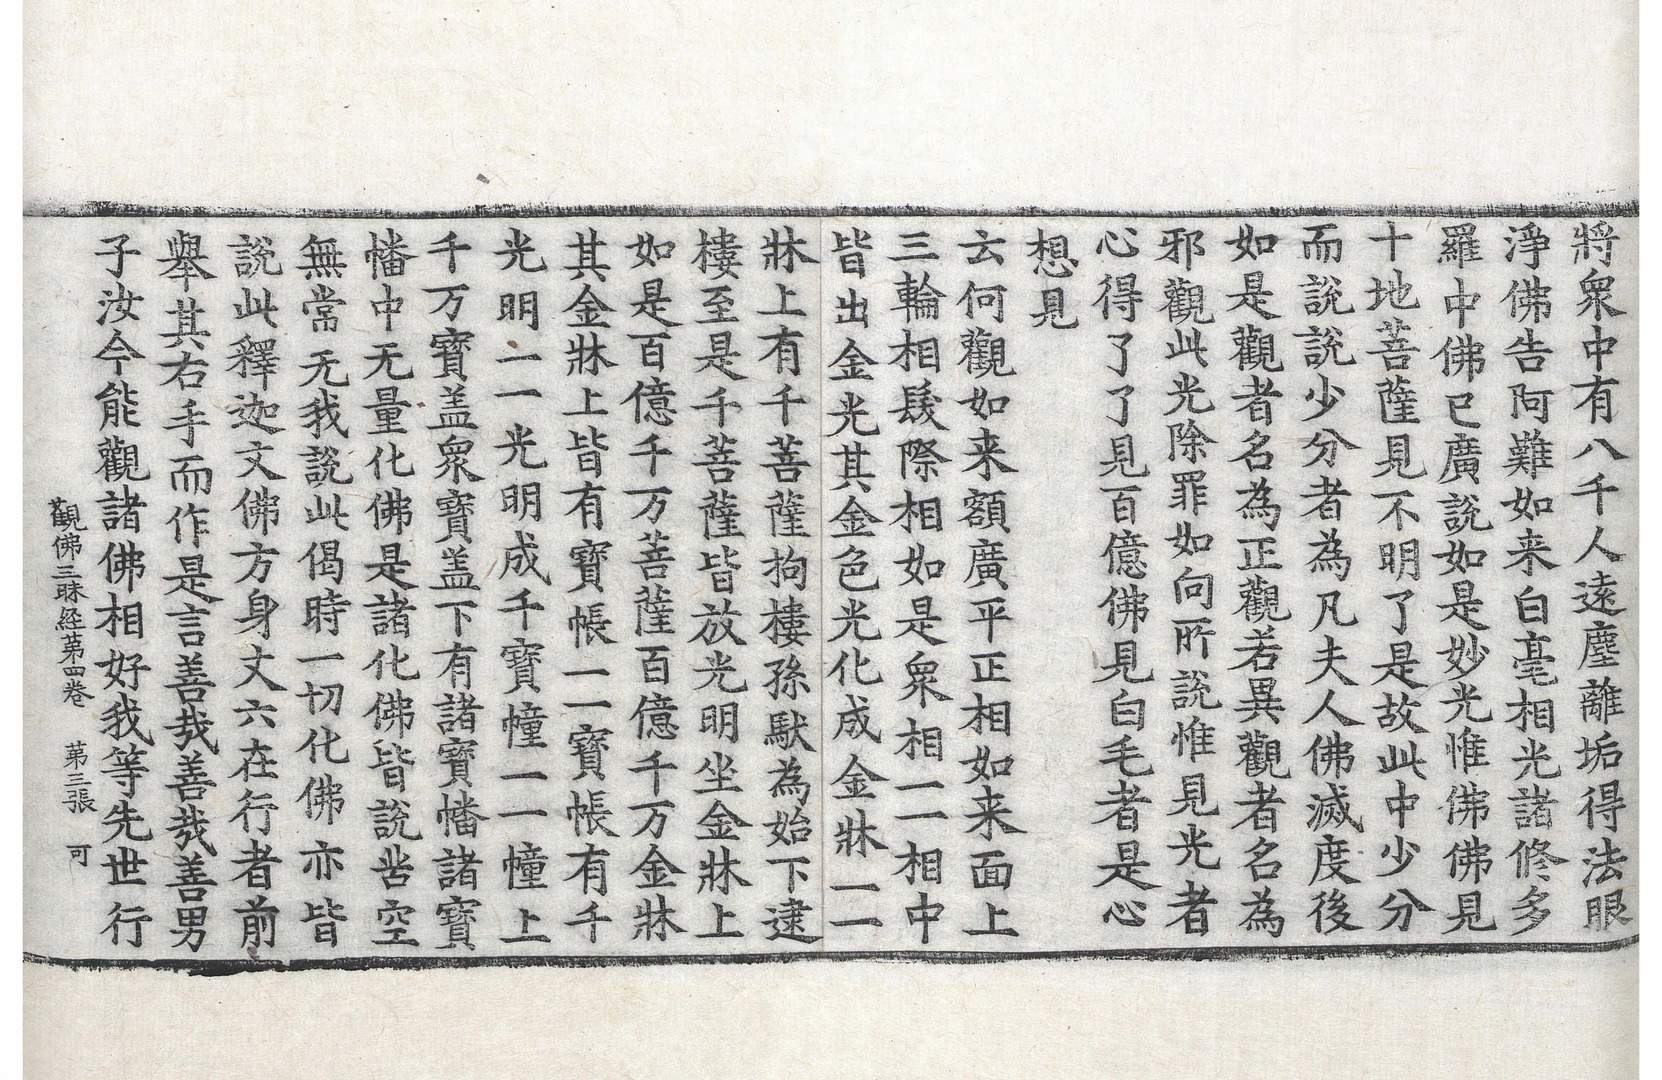 將衆中有八千人遠塵離垢得法眼
淨佛告阿難如来白毫相光諸修多
羅中佛已廣說如是妙光惟佛佛見
十地菩薩見不明了是故此中少分
而說說少分者為凡夫人佛滅度後
如是觀者名為正觀若異觀者名為
邪觀此光除罪如向所說惟見光者
心得了了見百億佛見白毛者是心
想見
云何觀如来額廣平正相如来面上
三輪相髮際相如是衆相一一相中
皆出金光其金色光化成金牀一一
牀上有千菩薩拘樓孫䭾為始下逮
樓至是千菩薩皆放光明坐金牀上
如是百億千万菩薩百億千万金牀
其金牀上皆有寶帳一一寶帳有千
光明一一光明成千寶幢一一幢上
千万寶盖衆寶盖下有諸寶幡諸寶
幡中无量化佛是諸化佛皆說苦空
無常无我說此偈時一切化佛亦皆
說此釋迦文佛方身丈六在行者前
舉其右手而作是言善㢤善㢤善男
子汝今能觀諸佛相好我等先世行
觀佛三昧経苐四卷 苐三張 可